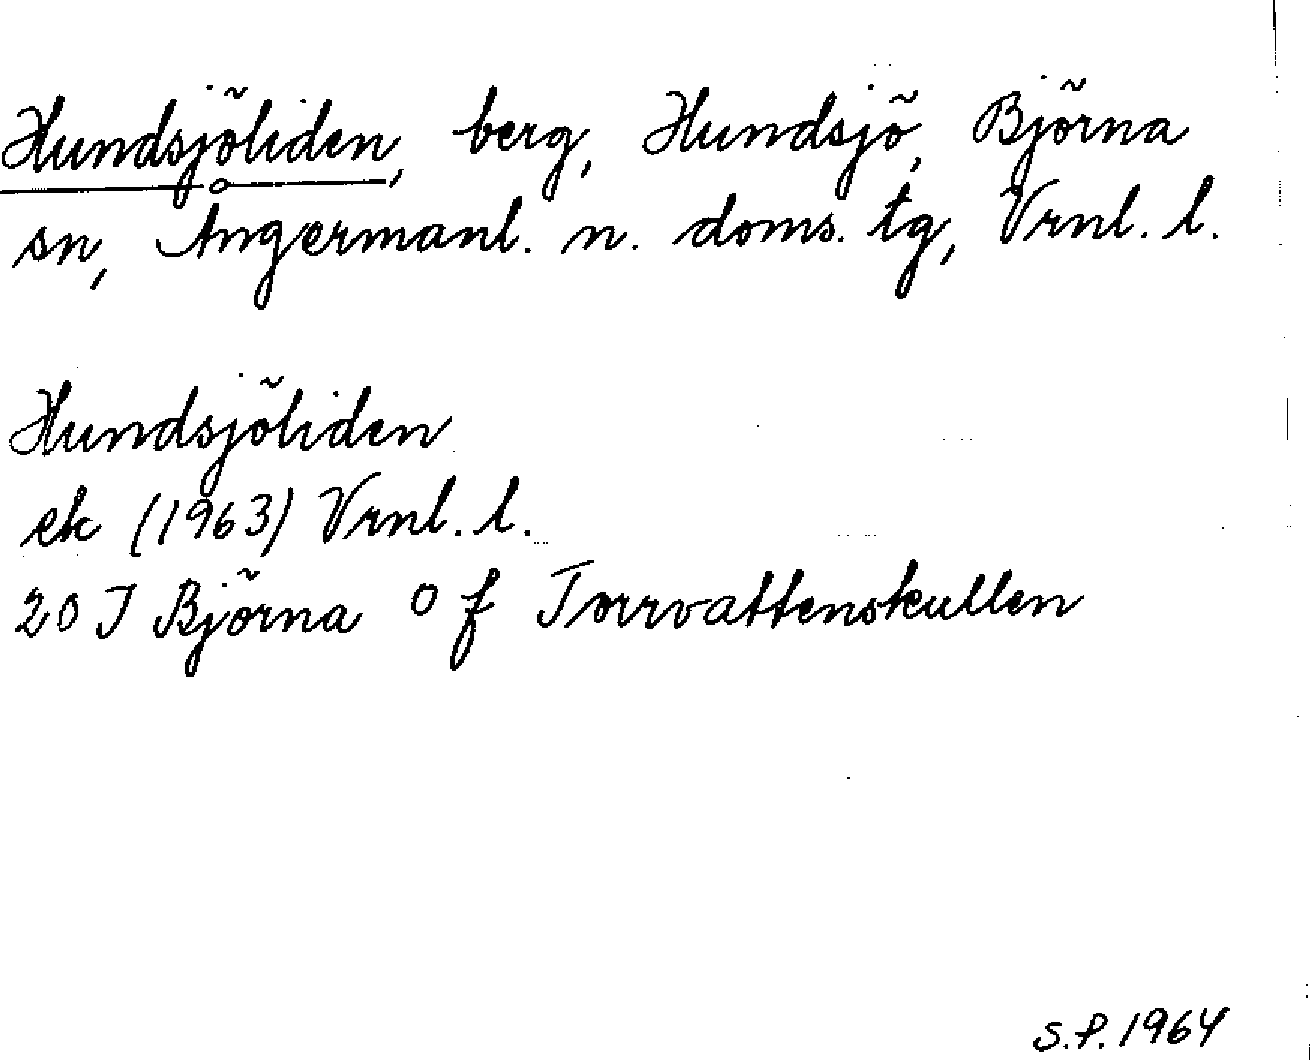 Hundsjöliden, berg, Hundsjö, Björna
sn, Ångermanl. n. doms. tg, Vrnl. l.
Hundsjöliden
ek (1963) Vrnl. l.
20 J Björna O f Torrvattenskullen
S.P. 1964